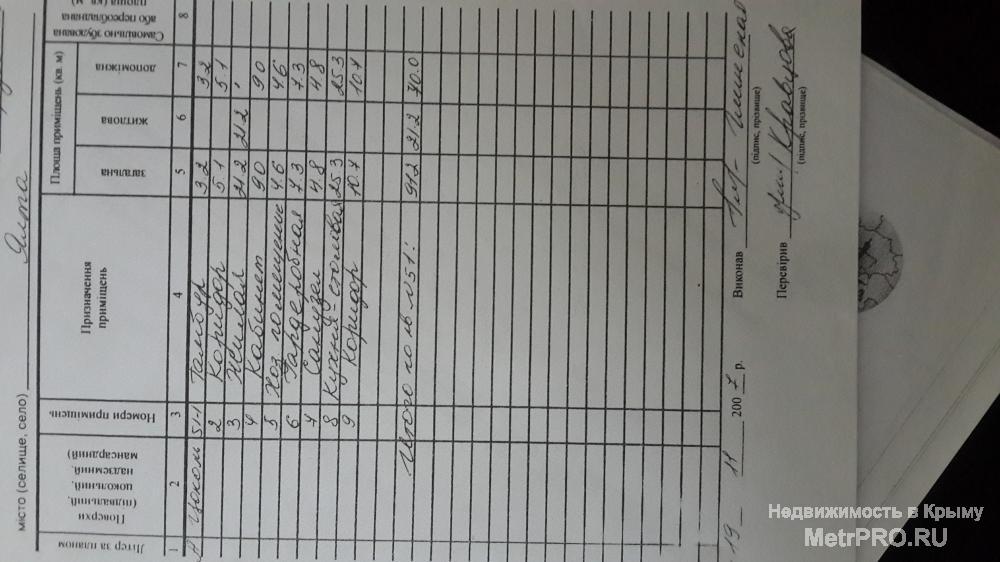 місто (селище, село) Ялта
Літер за планом
Поверхи (підвальний, цокольний, надземний, мансардний)
Номери приміщень
Призначення приміщень
Площа приміщень (кв. м)
загальна
житлова
допоміжна
Самовільно збудована або переобладнана площа (кв. м)
1 2 3 4 5 6 7 8
А Цоколь 51-1 Тамбур 3.2 3.2
2 Коридор 5.1 5.1
3 Жилая 21.2 21.2 -
4 Кабинет 9.0 9.0
5 Хоз помещение 4.6 4.6
6 Гардеробная 7.3 7.3
7 Санузел 4.8 4.8
8 Кухня-столовая 25.3 25.3
9 Коридор 10.7 10.7
Итого по кв №51: 91.2 21.2 70.0
19 11 2007 р.
Виконав
(підпис, прізвище)
Перевірив Кравцова
(підпис, прізвище)
Недвижимость в Крыму
MetrPRO.RU